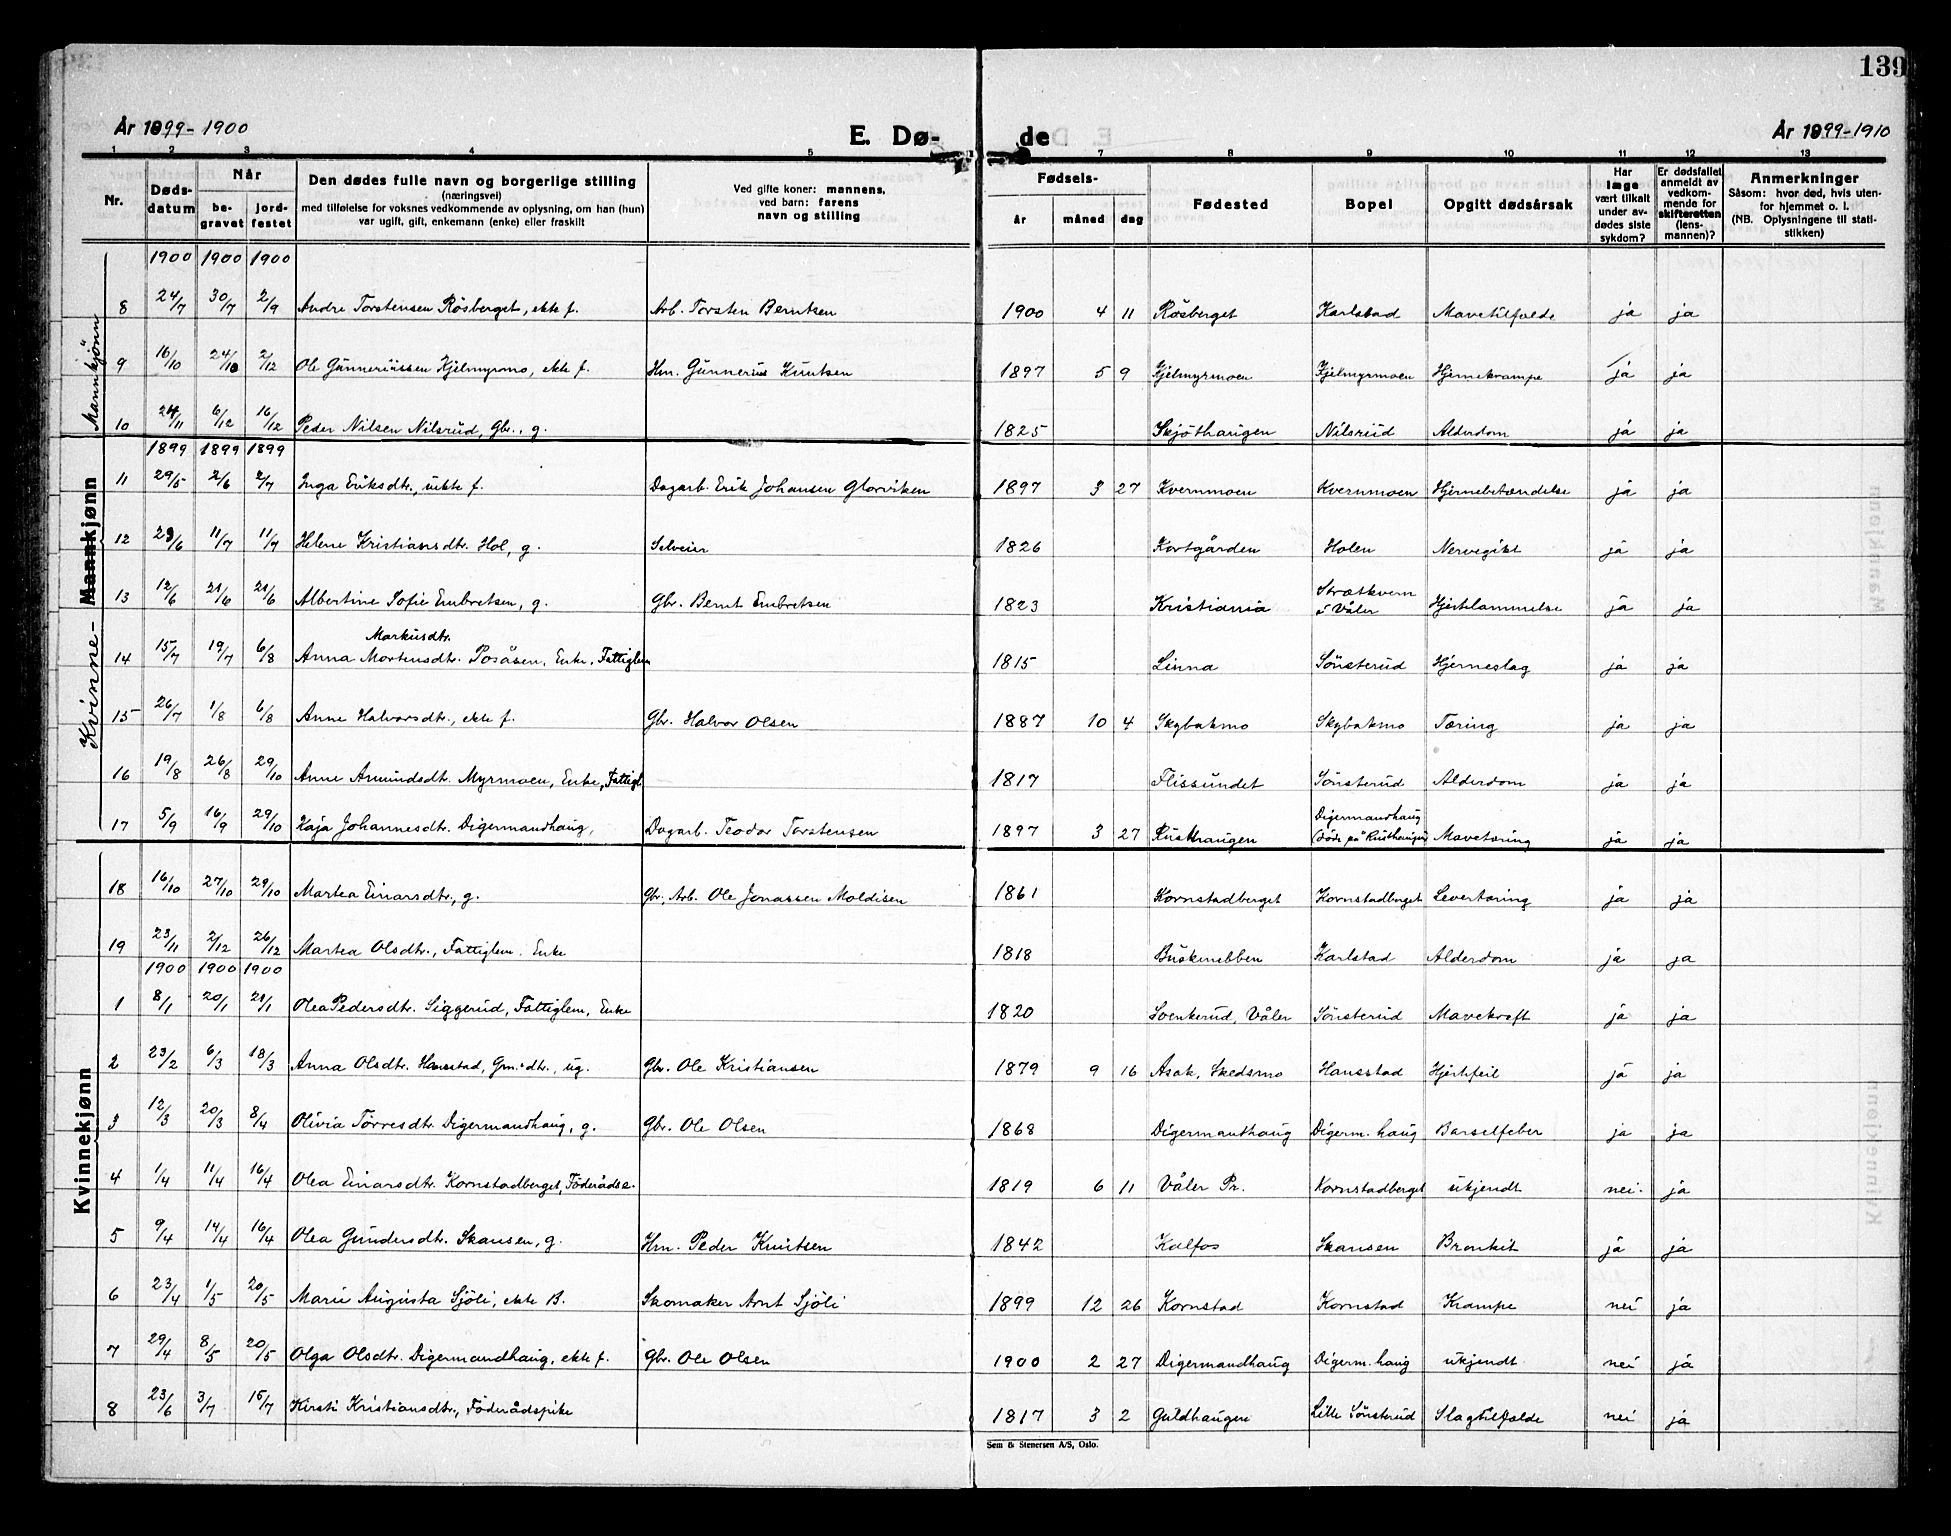 139
År 1899-1900 E. Dø- de År 1899-1910
1 2 3 4 5 7 8 9 10 11 12 13
Nr. Døds-datum Når be-gravet jord-festet Den dødes fulle navn og borgerlige stilling (næringsvei) med tilføielse for voksnes vedkommende av oplysning, om han (hun) var ugift, gift, enkemann (enke) eller fraskilt Ved gifte koner: mannens, ved barn: farens navn og stilling Fødsels- år måned dag Fødested Bopel Opgitt dødsårsak Har læge vært tilkalt under av-dødes siste sykdom? Er dødsfallet anmeldt av vedkom-mende for skifteretten (lens-mannen)? Anmerkninger Såsom: hvor død, hvis uten-for hjemmet o. l. (NB. Oplysningene til stati-stikken)
Mannkjønn
1900 1900 1900
8 24/7 30/7 2/9 Andre Torstensen Rösberget, ekte f. Arb. Torsten Berntsen 1900 4 11 Rösberget Karlstad Mavetilfælde ja ja
9 16/10 24/10 2/12 Ole Gunneriussen Kjelmyrmo, ekte f. Hm. Gunnerius Knutsen 1897 5 9 Kjelmyrmoen Kjelmyrmoen Hjernekrampe ja ja
10 24/11 6/12 16/12 Peder Nilsen Nilsrud, Gbr., g. 1825 Skjöthaugen Nilsrud Alderdom ja ja
Kvinne- Mannkjønn
1899 1899 1899
11 29/5 2/6 2/7 Inga Eriksdtr., uekte f. Dagarb. Erik Johansen Glorviken 1897 3 27 Kvernmoen Kvernmoen Hjernebetændelse ja ja
12 29/6 11/7 11/7 Helene Kristiansdtr. Hol, g. Selveier 1826 Kortgården Holen Nervegikt ja ja
13 12/6 21/6 21/6 Albertine Sofie Embretsen, g. Gbr. Bernt Embretsen 1823 Kristiania Strætkvern i Våler Hjertelammelse ja ja
Markusdtr.
14 15/7 19/7 6/8 Anna Mortensdtr. Posåsen, Enke, Fattiglem 1815 Linna Sönsterud Hjerneslag ja ja
15 26/7 1/8 6/8 Anne Halvorsdtr., ekte f. Gbr. Halvor Olsen 1887 10 4 Skybakmo Skybakmo Tæring ja ja
16 19/8 26/8 29/10 Anne Amundsdtr. Myrmoen, Enke, Fattigl 1817 Flissundet Sönsterud Alderdom ja ja
17 5/9 16/9 29/10 Kaja Johannesdtr. Digermandhaug, Dagarb. Teodor Torstensen 1897 3 27 Rusthaugen Digermandhaug (döde på Rusthaugen) Mavetæring ja ja
18 16/10 27/10 29/10 Martea Einarsdtr., g. Gbr, Arb. Ole Jonassen Moldisen 1861 Kornstadberget Kornstadberget Levertæring ja ja
19 23/11 2/12 26/12 Martea Olsdtr., Fattiglem. Enke 1818 Buskenebben Karlstad Alderdom ja ja
Kvinnekjønn
1900 1900 1900
1 8/1 20/1 21/1 Olea Pedersdtr. Siggerud, Fattiglem, Enke 1820 Svenkerud, Våler Sönsterud Mavekræft ja ja
2 23/2 6/3 18/3 Anna Olsdtr. Hansstad, Gm.dtr., ug. Gbr. Ole Kristiansen 1879 9 16 Asak, Skedsmo Hansstad Hjertefeil ja ja
3 12/3 20/3 8/4 Olivia Torresdtr. Digermandhaug, g. Gbr. Ole Olsen 1868 Digermanthaug Digerm. haug Barselfeber ja ja
4 1/4 11/4 16/4 Olea Einarsdtr. Kornstadberget, Föderådse. 1819 6 11 Våler Pr. Kornstadberget ukjendt nei. ja
5 9/4 14/4 16/4 Olea Gundersdtr. Skansen, g. Hm. Peder Knutsen 1842 Kalfos Skansen Bronkit ja ja
6 23/4 1/5 20/5 Marie Augusta Sjöli, ekte B. Skomaker Arnt Sjöli 1899 12 26 Kornstad Kornstad Krampe nei ja
7 29/4 8/5 20/5 Olga Olsdtr. Digermandhaug, ekte f. Gbr. Ole Olsen 1900 2 27 Digermandhaug Digerm. haug ukjendt nei ja
8 23/6 3/7 15/7 Kirsti Kristiansdtr., Föderådspike 1817 3 2 Guldhaugen Lille Sönsterud Slagtilfælde nei ja
Sem & Stenersen A/S, Oslo.